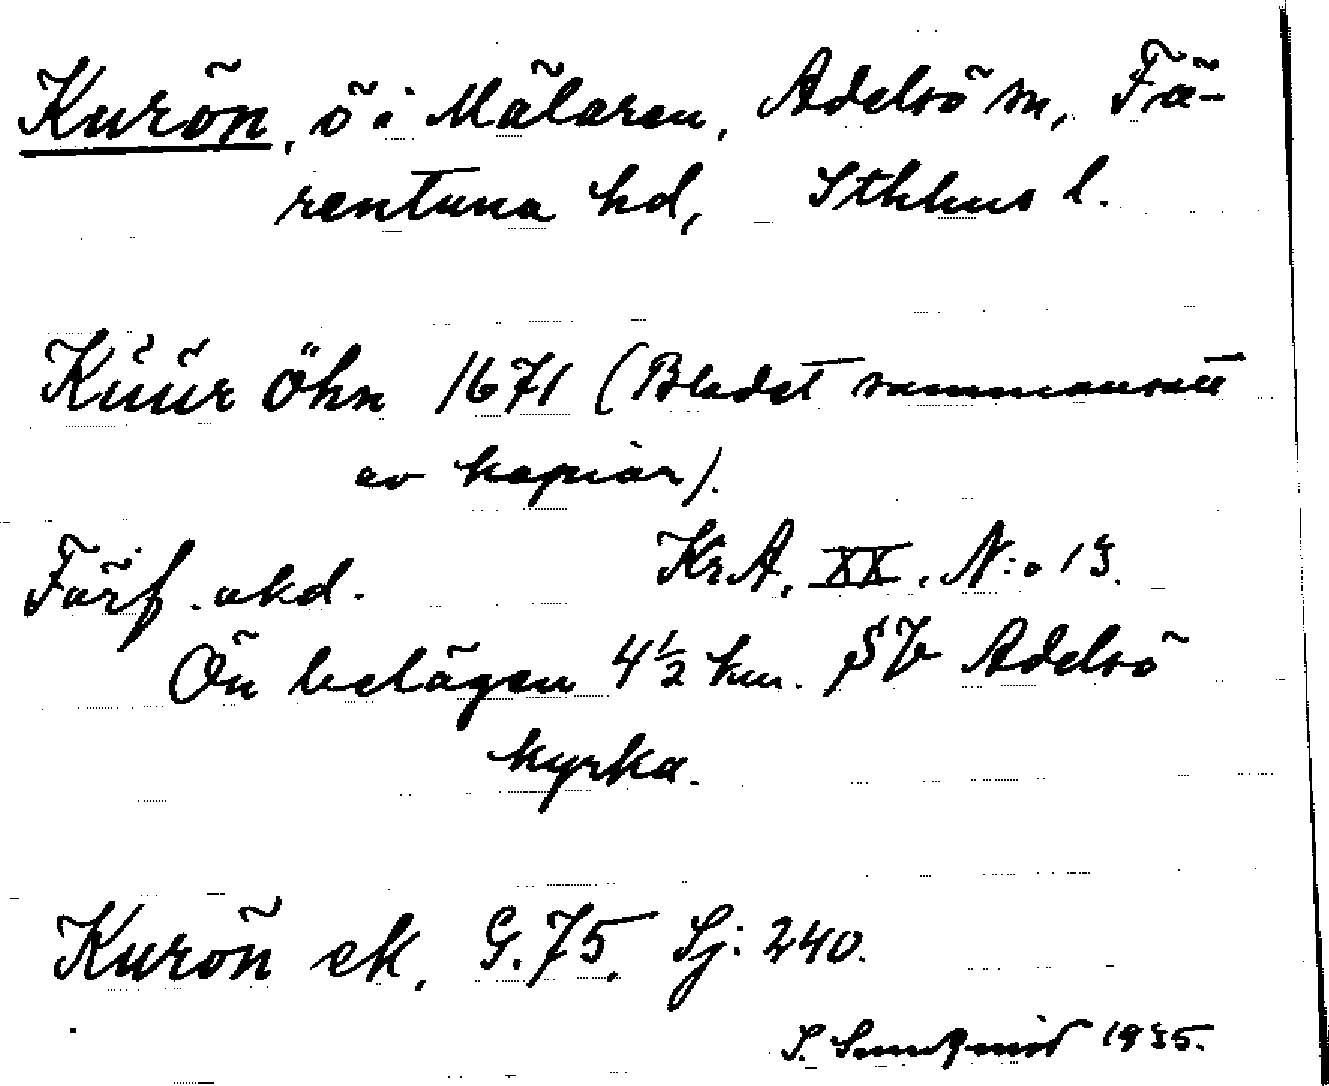 Kurön, ö i Mälaren, Adelsö sn, Fä-
rentuna hd, Sthlms l.
Kuur öhn 1671 (Bladet sammansatt
av kopior).
Förf. okd. KrA, XX, N:o 13.
Ön belägen 4½ km. SV Adelsö
kyrka.
Kurön ek. G. 75. Sj: 240.
S. Sundqvist 1935.